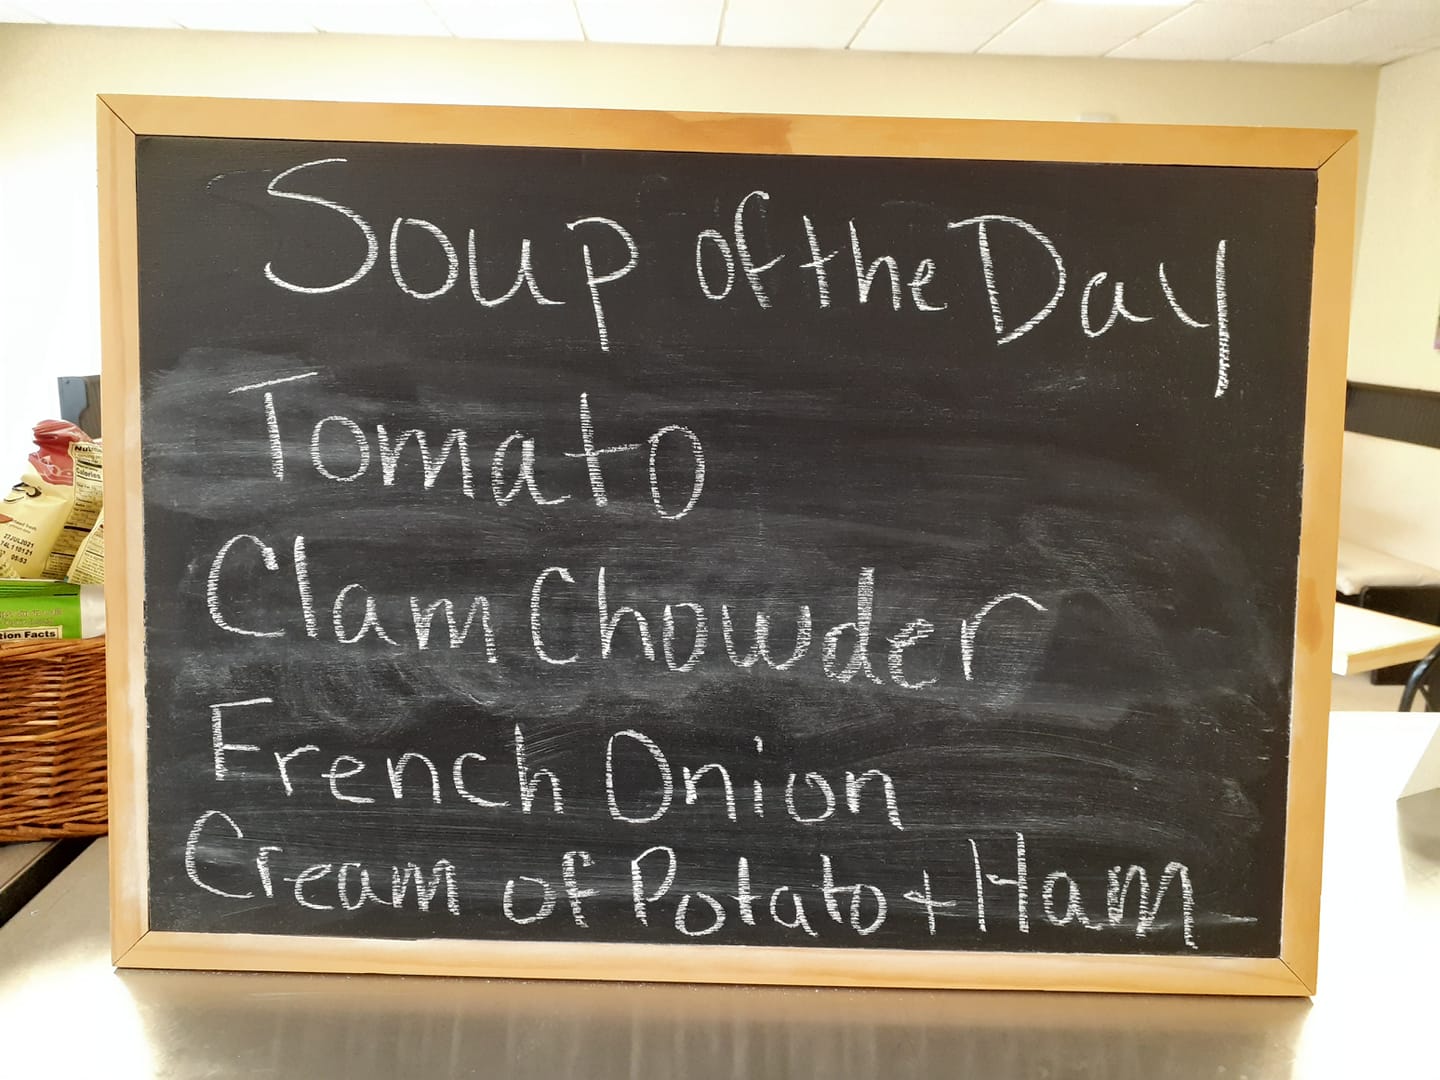 Soup of the Day
Tomato
Clam Chowder
French Onion
Cream of Potato + Ham
Calories
27JUL2021
05:53
tion Facts